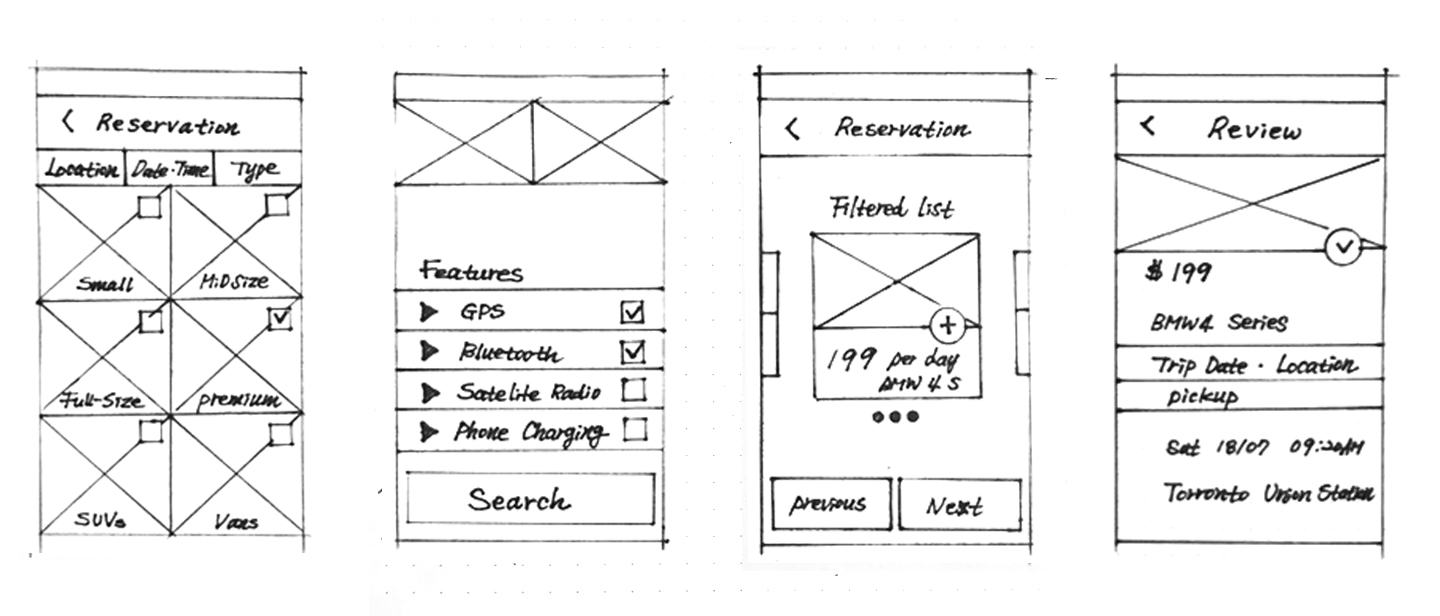 < Reservation
Location Date·Time Type
Small MiDSize
Full-Size premium
SUVs Vans
Features
GPS
Bluetooth
Satelite Radio
Phone Charging
Search
< Reservation
Filtered list
+
199 per day
BMW 4 S
previous Next
< Review
$199
BMW4 Series
Trip Date · Location
pickup
Sat 18/07 09:20AM
Torronto Union Station